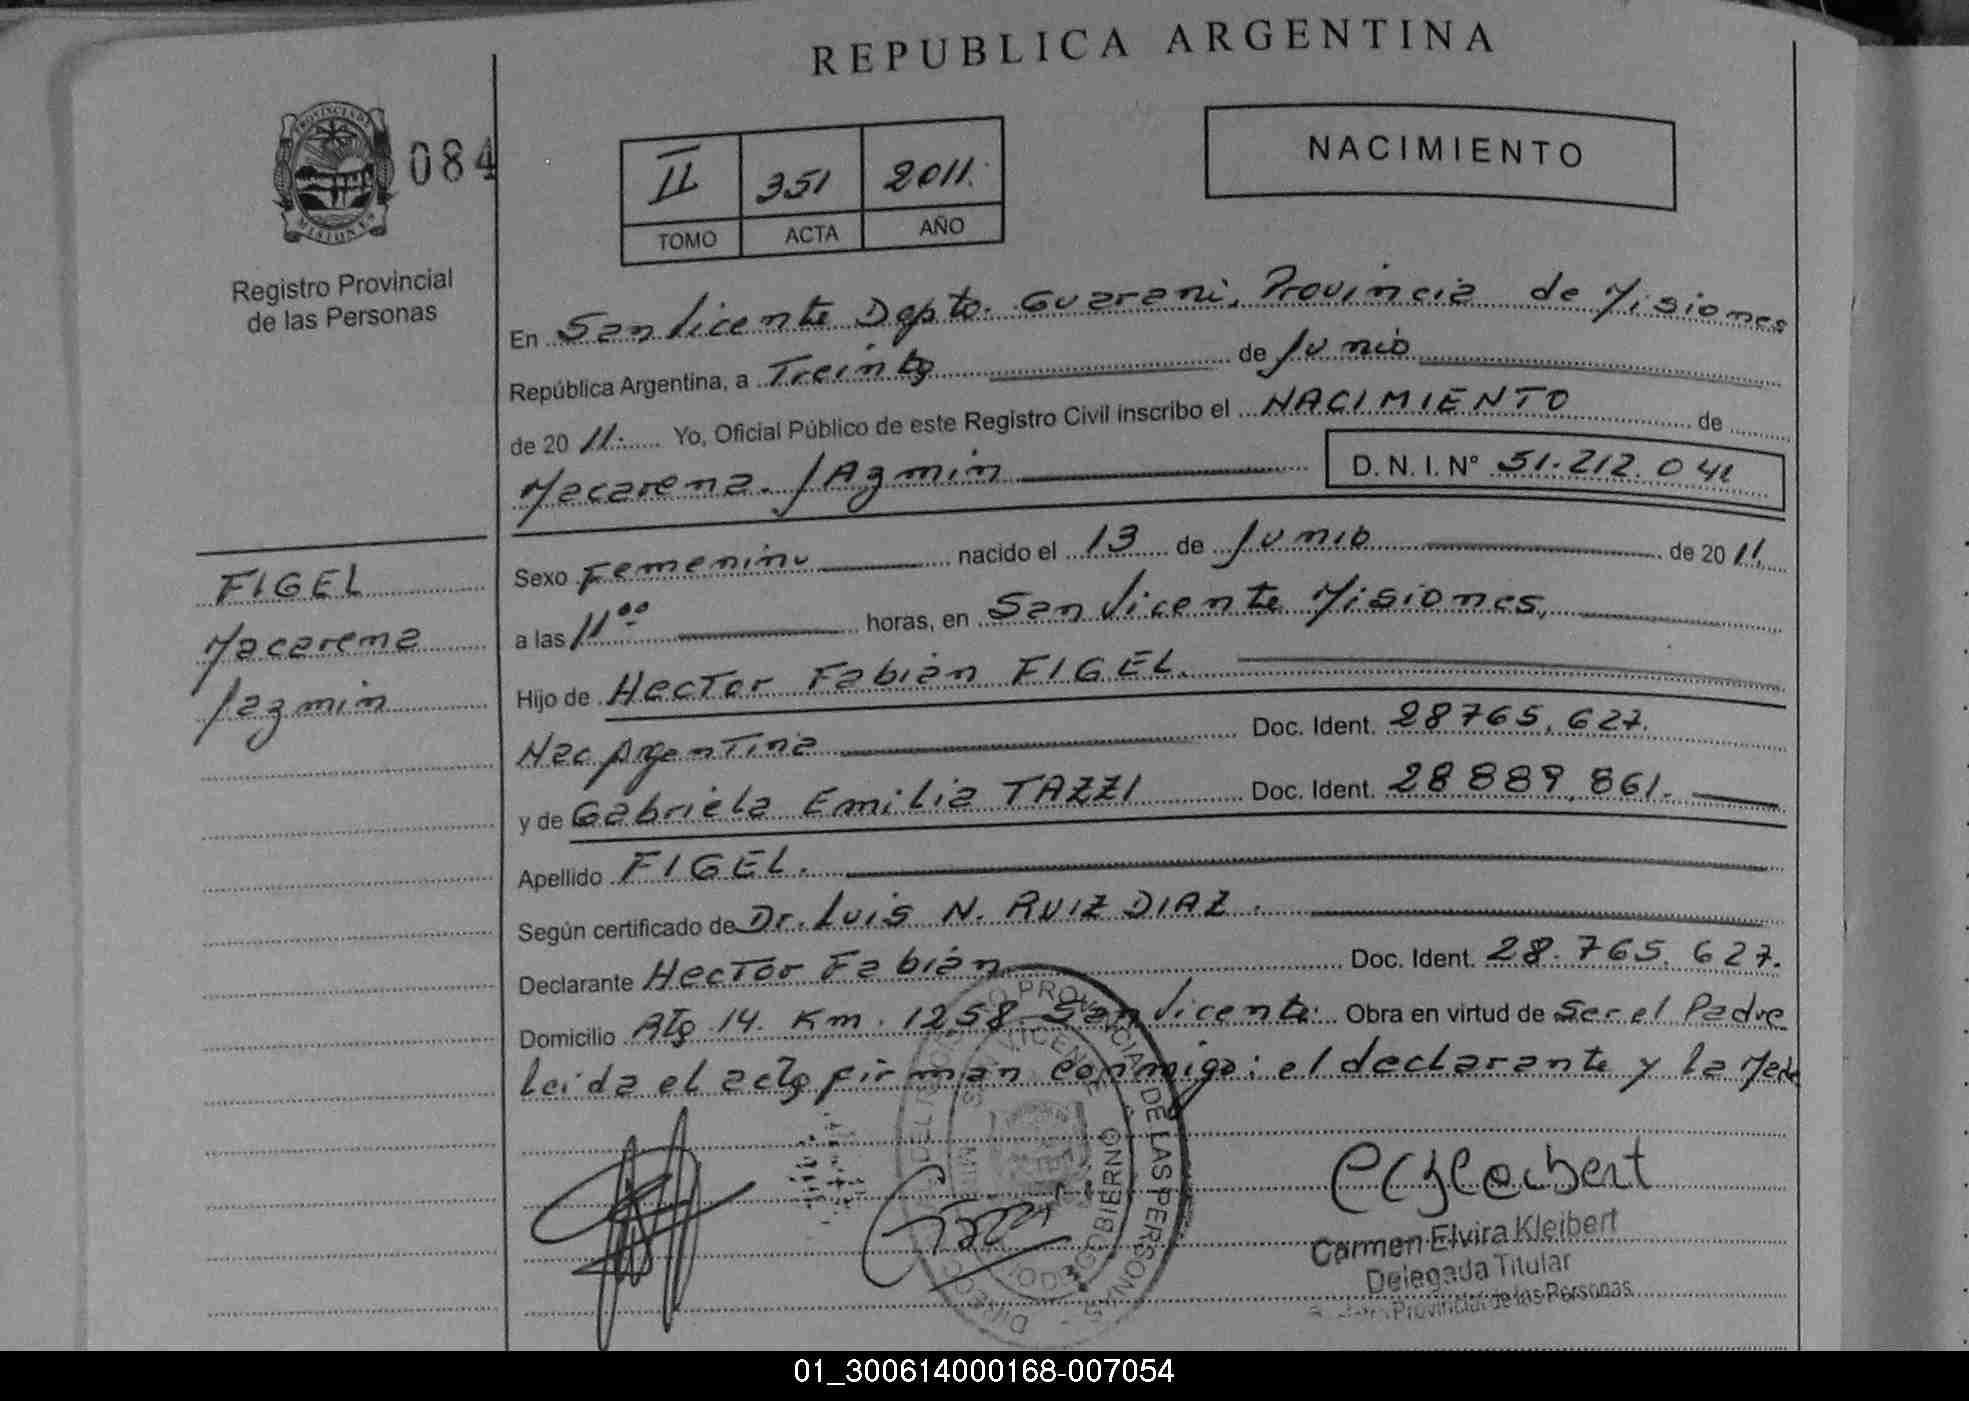 REPUBLICA ARGENTINA
PROVINCIA DE
MISIONES
084
Registro Provincial
de las Personas
II 351 2011.
TOMO ACTA AÑO
NACIMIENTO
En San Vicente Dpto. Guarani, Provincia de Misiones
República Argentina, a Treinta de Junio
de 20 11. Yo, Oficial Público de este Registro Civil inscribo el NACIMIENTO de
Macarena Jazmin D. N. I. N° 51.212.041
FIGEL
Macarena
Jazmin
Sexo Femenino nacido el 13 de Junio de 20 11.
a las 11 00 horas, en San Vicente Misiones,
Hijo de Hector Fabián FIGEL.
Nac Argentina Doc. Ident. 28765.627.
y de Gabriela Emilia TAZZI Doc. Ident. 28889.861.
Apellido FIGEL.
Según certificado de Dr. Luis N. RUIZ DIAZ.
Declarante Hector Fabián Doc. Ident. 28.765.627.
Domicilio Rta 14. Km. 1258. San Vicente. Obra en virtud de Ser el Padre
Leida el acta firman conmigo: el declarante y la Madre
PROVINCIAL DE LAS PERSONAS
GOBIERNO
CKleibert
Carmen Elvira Kleibert
Delegada Titular
Provincial de las Personas
01_300614000168-007054